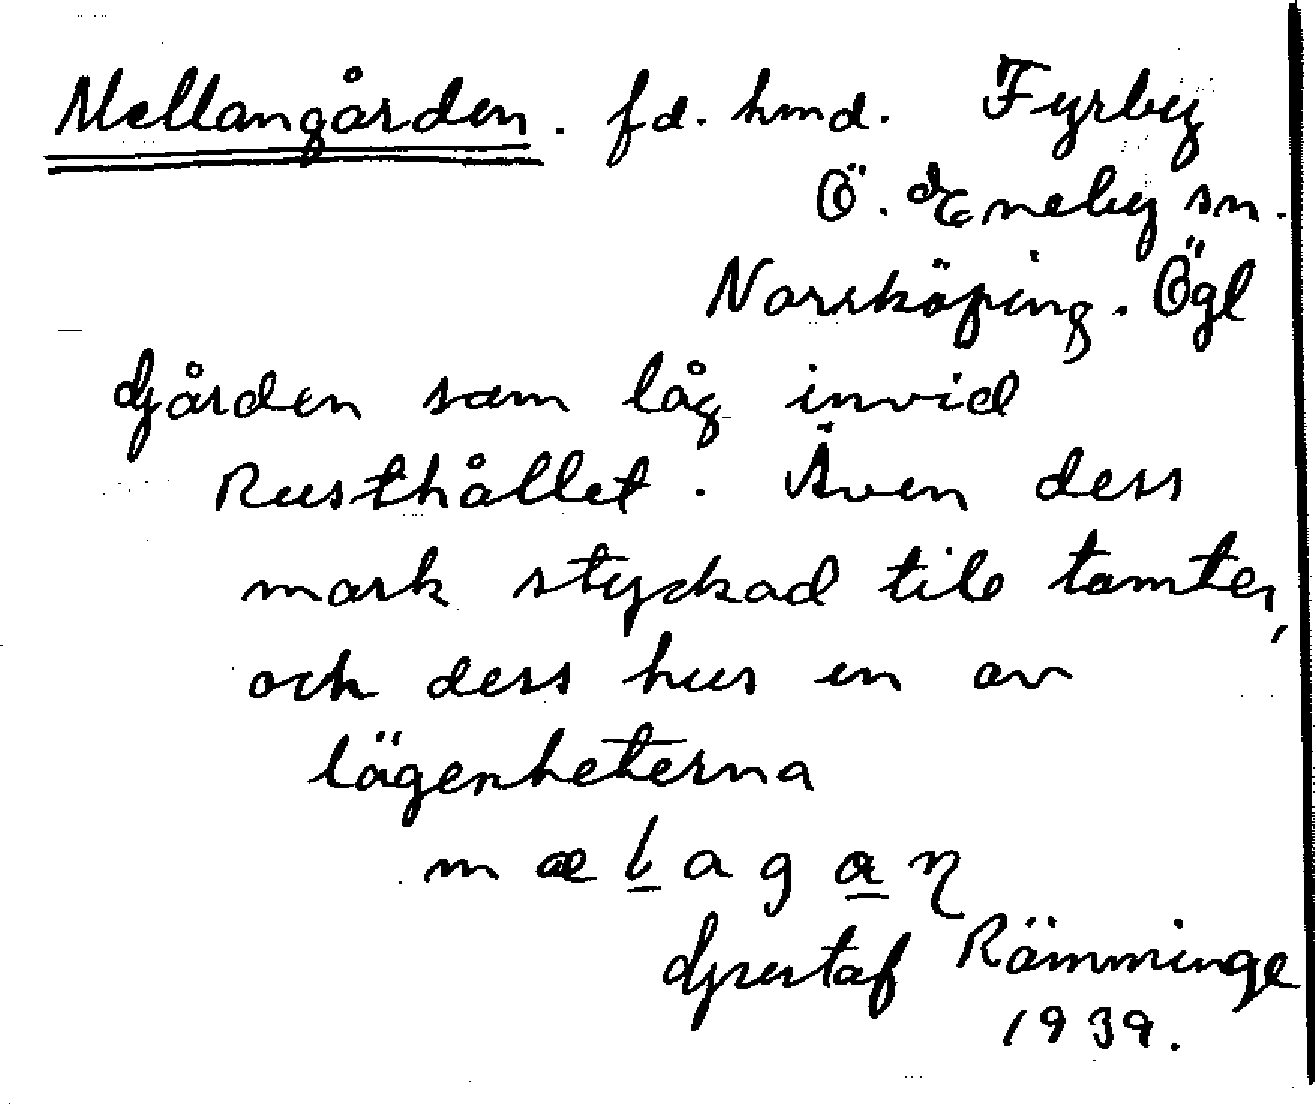 Mellangården. fd. hmd. Fyrby
Ö. Eneby sn.
Norrköping. Ögl
Gården som låg invid
Rusthållet. Även dess
mark styckad till tomter,
och dess hus en av
lägenheterna
Gustaf Rämminge
1939.